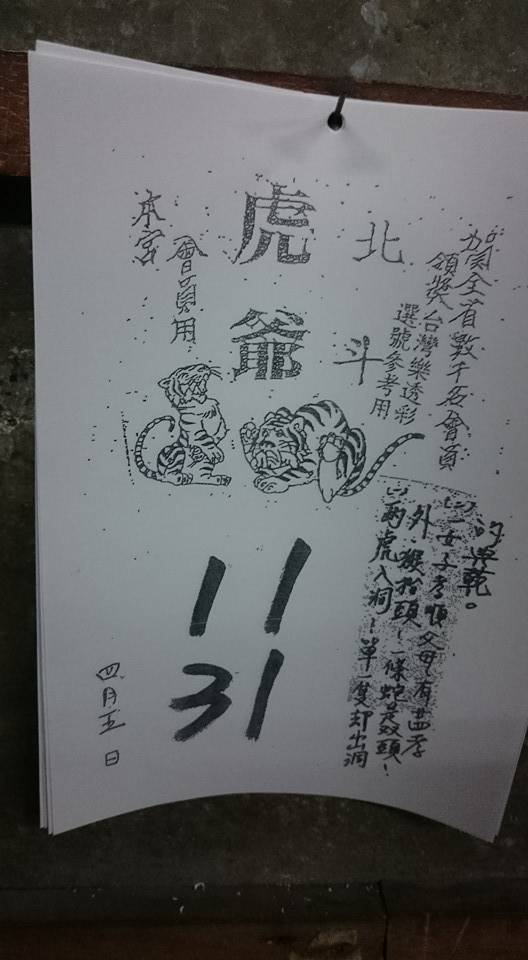 賀全省數千名會員
領獎台灣樂透彩
選號參考用
北斗
虎爺
會員用
本宮
的典範。
一女子孝順父母有廿四孝
外.猴抬頭!一條蛇是双頭!
兩虎入洞!單一隻却出洞
11
31
四月五日